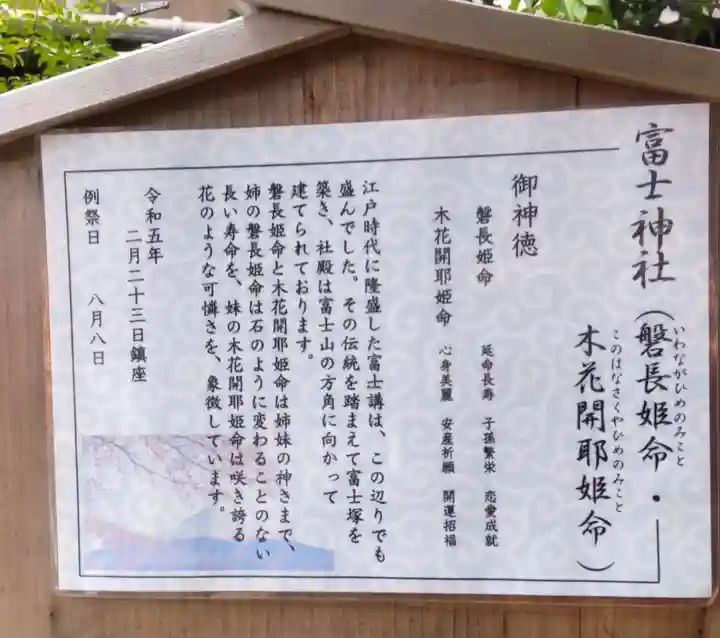 富士神社(磐長姫命・
いわながひめのみこと
木花開耶姫命)
このはなさくやひめのみこと
御神徳
磐長姫命 延命長寿 子孫繁栄 恋愛成就
木花開耶姫命 心身美麗 安産祈願 開運招福
江戸時代に隆盛した富士講は、この辺りでも
盛んでした。その伝統を踏まえて富士塚を
築き、社殿は富士山の方角に向かって
建てられております。
磐長姫命と木花開耶姫命は姉妹の神さまで、
姉の磐長姫命は石のように変わることのない
長い寿命を、妹の木花開耶姫命は咲き誇る
花のような可憐さを、象徴しています。
令和五年
二月二十三日鎮座
例祭日 八月八日